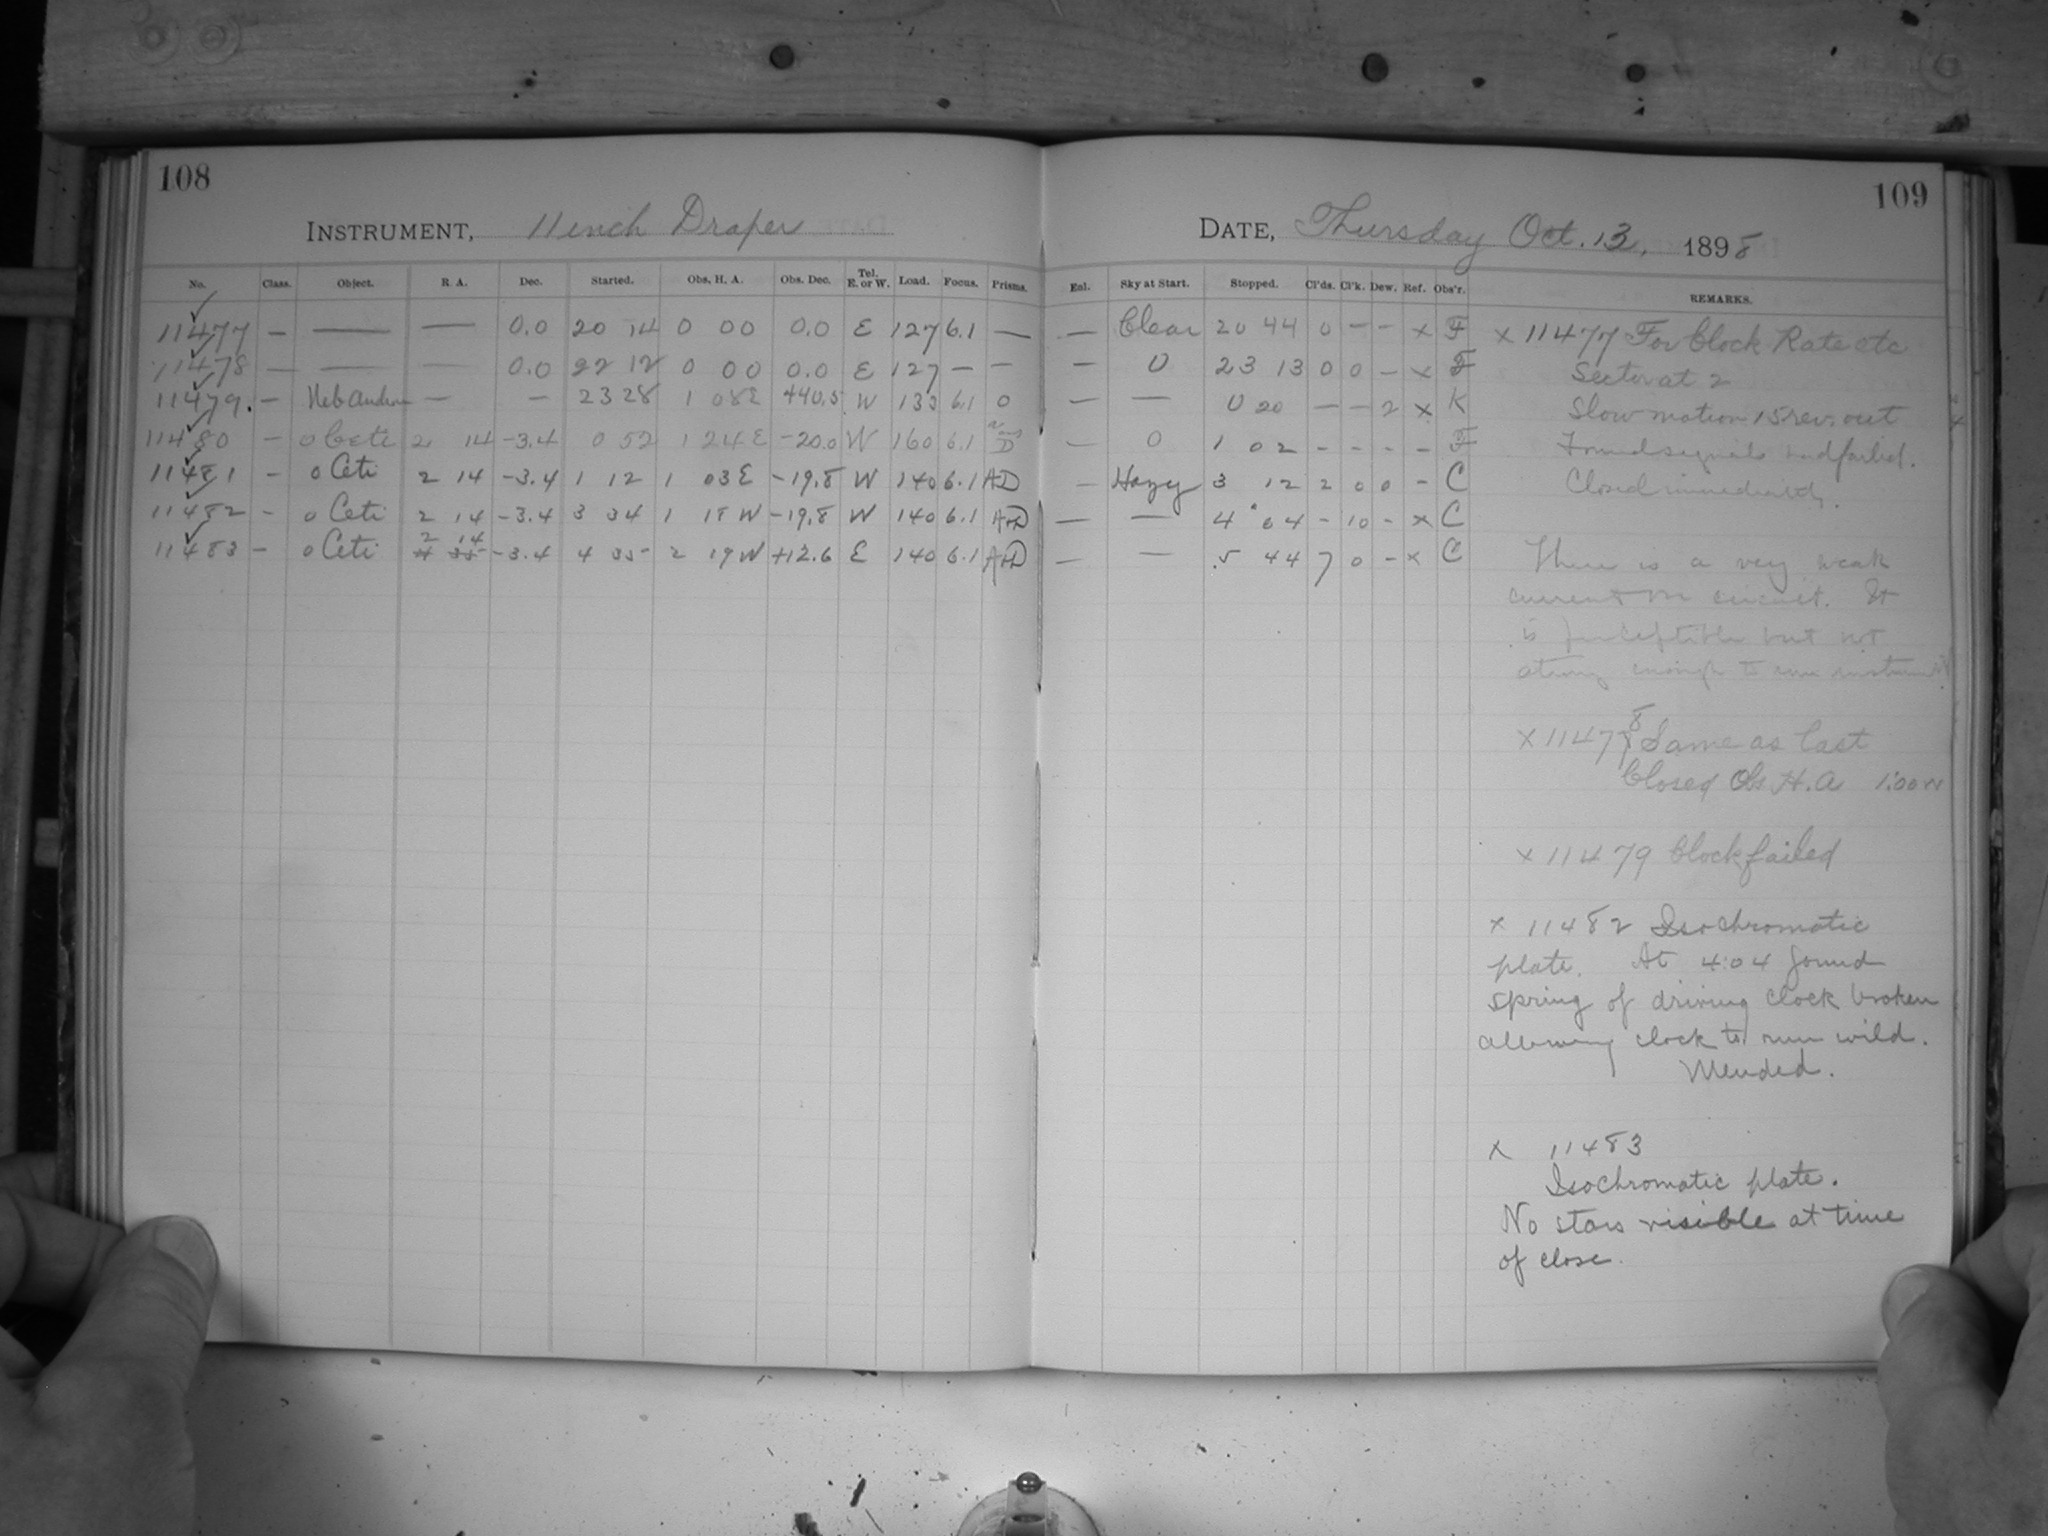 108
INSTRUMENT, 11 inch Draper
No. Class. Object. R. A. Dec. Started. Obs. H. A. Obs. Dec. Tel. E. or W. Load. Focus. Prisms.
11477 — — — 0.0 20 14 0 00 0.0 E 127 6.1 —
11478 — — — 0.0 22 12 0 00 0.0 E 127 — —
11479. — Neb Androm — — 23 28 1 08E +40.5 W 133 6.1 0
11480 — o Ceti 2 14 -3.4 0 52 1 24E -20.0 W 160 6.1 D
11481 - o Ceti 2 14 -3.4 1 12 1 03E -19.8 W 140 6.1 AD
11482 - o Ceti 2 14 -3.4 3 34 1 18W -19.8 W 140 6.1 A+D
11483 - o Ceti 2 14 4 35 -3.4 4 35 2 19W +12.6 E 140 6.1 A+D
109
DATE, Thursday Oct. 13, 1898
Enl. Sky at Start. Stopped. Cl'ds. Cl'k. Dew. Ref. Obs'r. REMARKS.
— Clear 20 44 0 - - x F
— 0 23 13 0 0 - x F
— — 0 20 — — 2 x K
— 0 1 02 - - - - F
— Hazy 3 12 2 0 0 - C
— — 4 04 - 10 - x C
— — 5 44 7 0 - x C
x 11477 For Clock Rate etc
Sector at 2
Slow motion 15 rev. out
Found signals had failed.
Closed immediately.
There is a very weak
current on circuit. It
is perceptible but not
strong enough to run instrument
x 11478 Same as last
Closed Obs H.A 1:00 W
x 11479 Clock failed
x 11482 Isochromatic
plate. At 4:04 found
spring of driving clock broken
allowing clock to run wild.
Mended.
x 11483
Isochromatic plate.
No stars visible at time
of close.